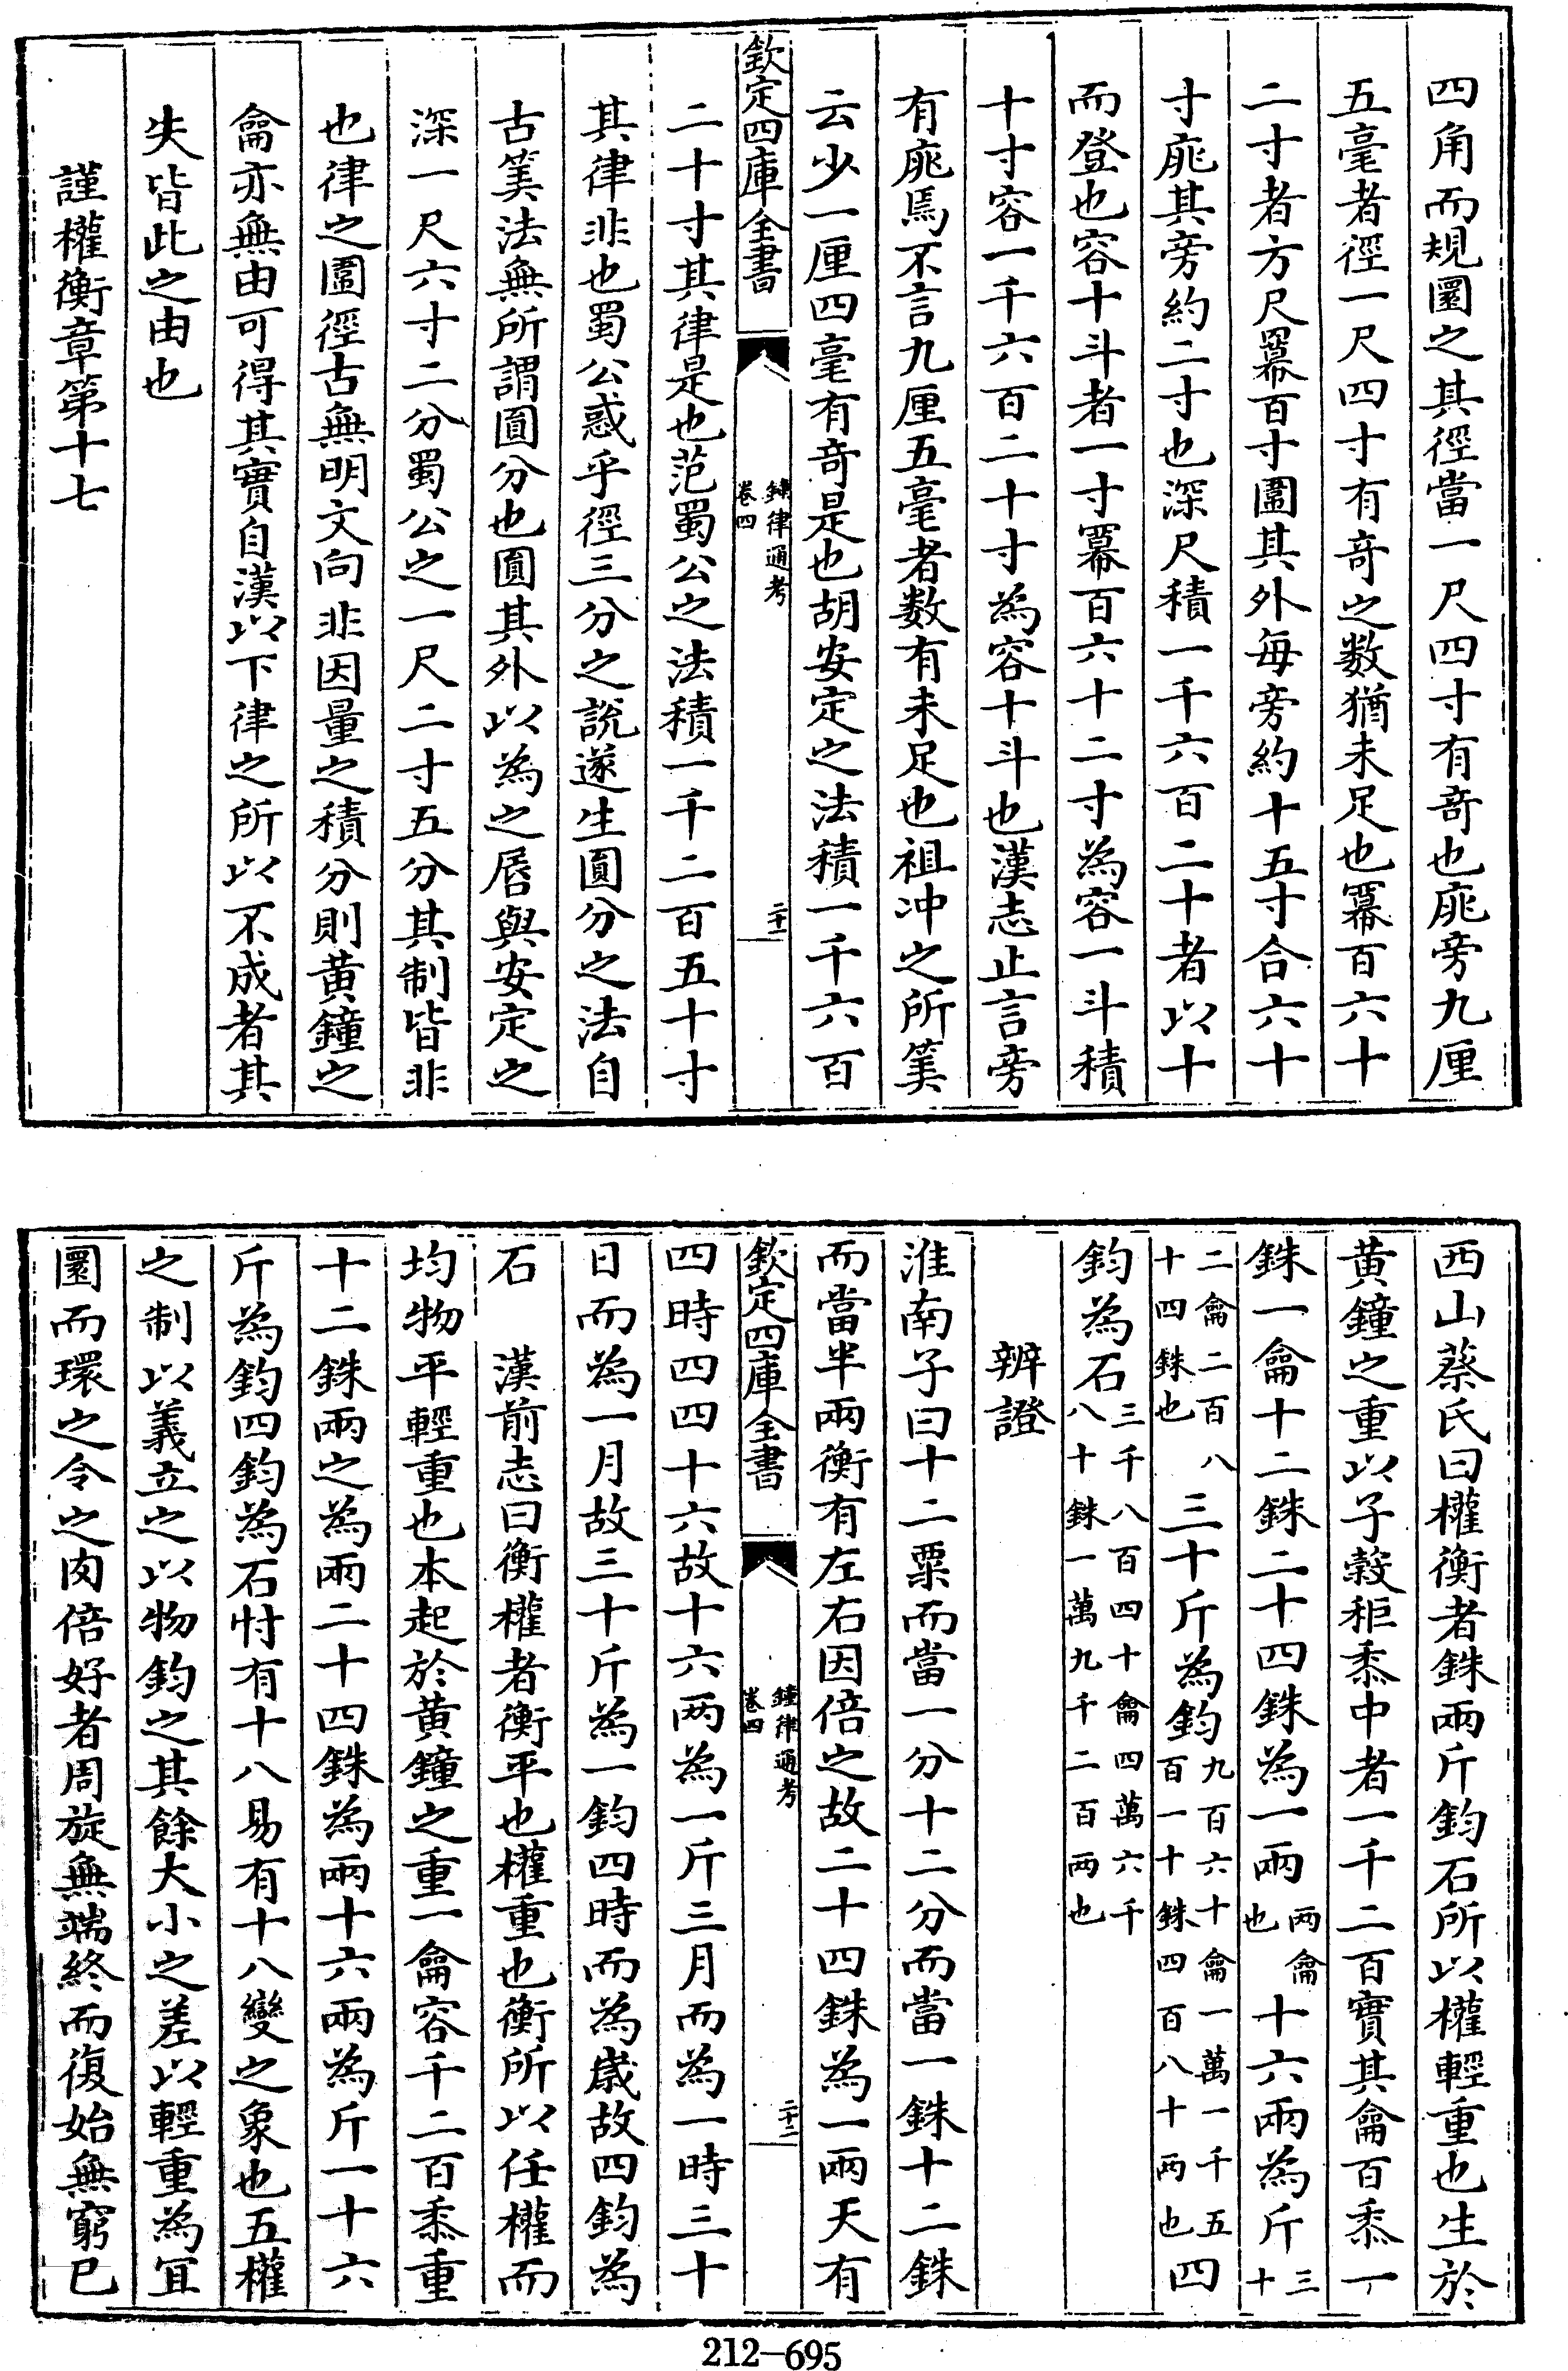 四角而規圜之其徑當一尺四寸有奇也庣旁九厘
五毫者徑一尺四寸有奇之数猶未足也冪百六十
二寸者方尺冪百寸圍其外每旁約十五寸合六十
寸庣其旁約二寸也深尺積一千六百二十者以十
而登也容十斗者一寸冪百六十二寸為容一斗積
十寸容一千六百二十寸為容十斗也漢志止言旁
有庣焉不言九厘五毫者数有未足也祖冲之所筭
云少一厘四毫有奇是也胡安定之法積一千六百
欽定四庫全書
鍾律通考
卷四
二十一
二十寸其律是也范蜀公之法積一千二百五十寸
其律非也蜀公惑乎徑三分之說遂生圓分之法自
古筭法無所謂圓分也圓其外以為之唇與安定之
深一尺六寸二分蜀公之一尺二寸五分其制皆非
也律之圍徑古無明文向非因量之積分則黄鐘之
龠亦無由可得其實自漢以下律之所以不成者其
失皆此之由也
謹權衡章第十七
西山蔡氏曰權衡者銖兩斤鈞石所以權輕重也生於
黄鐘之重以子穀秬黍中者一千二百實其龠百黍一
銖一龠十二銖二十四銖為一兩兩龠也十六兩為斤三十
二龠二百八十四銖也三十斤為鈞九百六十龠一萬一千五百一十銖四百八十两也四
鈞為石三千八百四十龠四萬六千八十銖一萬九千二百两也
辨證
淮南子曰十二粟而當一分十二分而當一銖十二銖
而當半兩衡有左右因倍之故二十四銖為一兩天有
欽定四庫全書
鐘律通考
卷四
二十二
四時四四十六故十六两為一斤三月而為一時三十
日而為一月故三十斤為一鈞四時而為歲故四鈞為
石　漢前志曰衡權者衡平也權重也衡所以任權而
均物平輕重也本起於黄鐘之重一龠容千二百黍重
十二銖兩之為兩二十四銖為兩十六兩為斤一十六
斤為鈞四鈞為石忖有十八易有十八變之象也五權
之制以義立之以物鈞之其餘大小之差以輕重為宜
圜而環之令之肉倍好者周旋無端終而復始無窮已
212-695